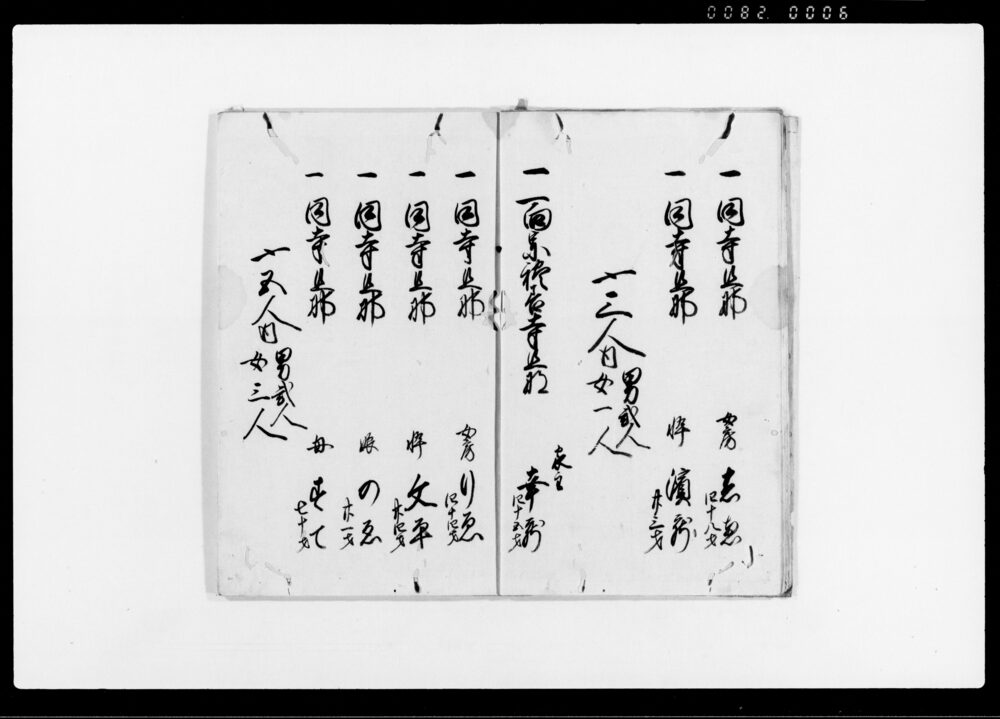 0082 0006
一 同寺旦那 女房 四十八才
一 同寺旦那 悴 濱蔵 廿三才
〆三人内 男弐人
女一人
一 一向宗 寺旦那 家主 幸蔵 四十五才
一 同寺旦那 女房 りゑ 四十四才
一 同寺旦那 悴 文平 廿四才
一 同寺旦那 娘 のゑ 廿一才
一 同寺旦那 母 すて 七十才
〆五人内 男弐人
女三人